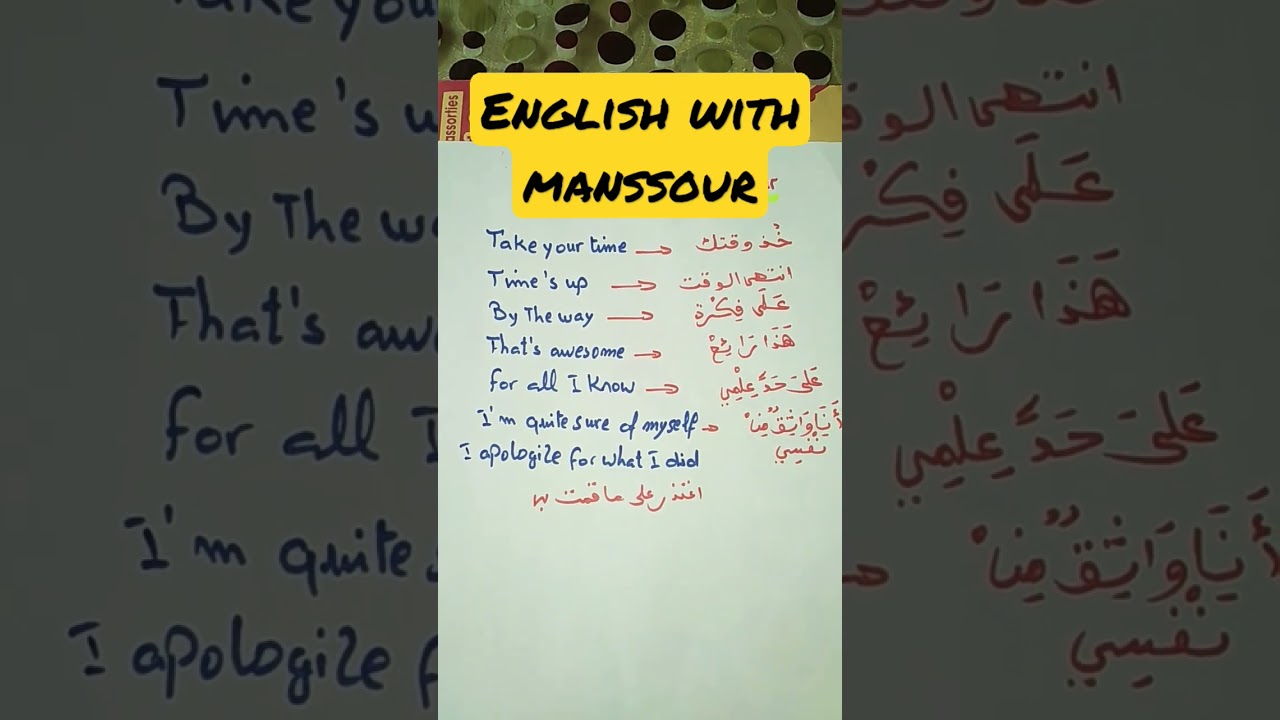 assorties
ENGLISH WITH
MANSSOUR
Take your time → خُذ وقتك
Time's up → انتهى الوقت
By The way → عَلَى فِكْرة
That's awesome → هَذَا رَائِعْ
for all I know → عَلىَ حَدِّ عِلْمِي
I'm quite sure of myself → أَنَا وَاثِقٌ مِنْ
نَفْسِي
I apologize for what I did
اعتذر على ما قمت به